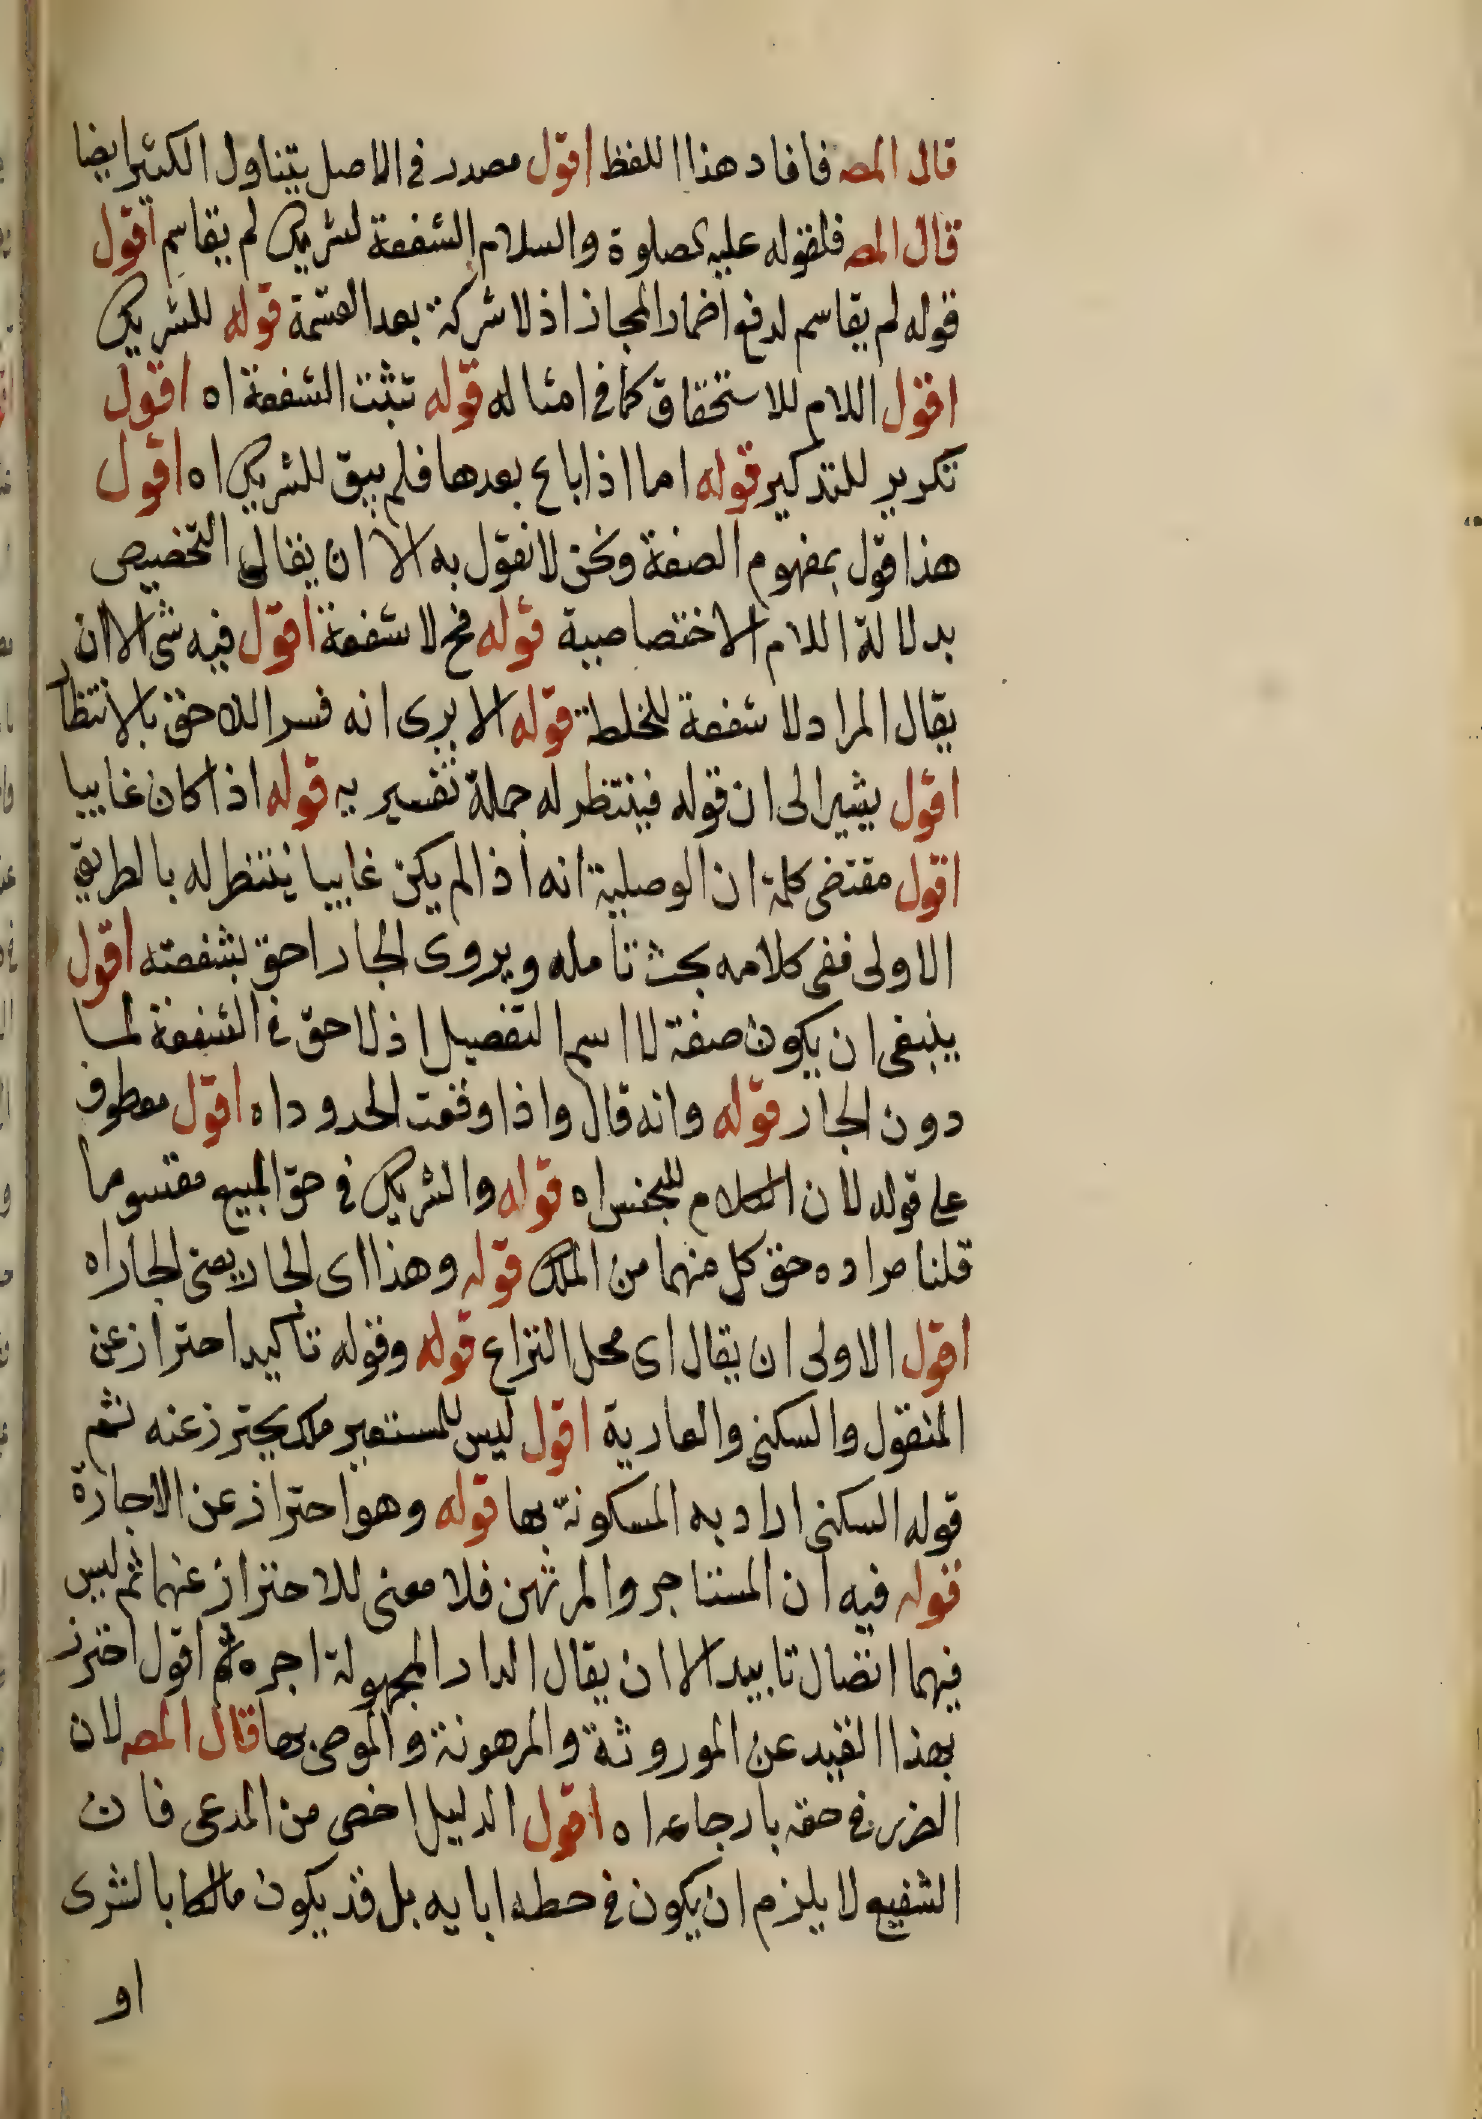 قال المصه فافاد هذا اللفظ اقول مصدر في الاصل يتناول الكثير ايضا
قال المصه فلقوله عليه لصلوة والسلام الشفعة لشريك لم يقاسم اقول
قوله لم يقاسم لدفع اضمار المجاز اذ لا شركة بعد القسمة قوله للشريك
اقول اللام للاستحقاق كما في امثاله قوله تثبت الشفعة اه اقول
تكرير للتذكير قوله اما اذا باع بعدها فلم يبق للشريك اه اقول
هذا قول بمفهوم الصفة ونحن لا نقول به الا ان يقال التخصيص
بدلالة اللام الاختصاصية قوله فح لا شفعة اقول فيه شئ الا ان
يقال المراد لا شفعة للخلطة قوله الا يرى انه فسر اللاحق بالانتظار
اقول يشير الى ان قوله فينتظر له جملة تفسيريه قوله اذا كان غايبا
اقول مقتضى كلمة ان الوصلية انه اذا لم يكن غايبا ينتظر له بالطريق
الاولى ففى كلامه بحث تامله ويروى الجار احق بشفعته اقول
ينبغى ان يكون صفة لا اسم التفضيل اذ لا حق في الشفعة لما
دون الجار قوله وانه قال واذا وقعت الحدود اه اقول معطوف
على قوله لان الكلام للجنس اه قوله والشريك في حق المبيع مقسوما
قلنا مراده حق كل منهما من الملك قوله وهذا اى الجار يعنى الجار اه
اقول الاولى ان يقال اى محل النزاع قوله وقوله تاكيد احتراز عن
المنقول والسكنى والعارية اقول ليس للمستعير ملك يحترز عنه ثم
قوله السكنى اراد به المسكونة بها قوله وهو احتراز عن الاجارة
قوله فيه ان المستاجر والمرتهن فلا معنى للاحتراز عنهما ثم ليس
فيهما اتصال تابيد الا ان يقال الدار المجهولة اجره ثم اقول احترز
بهذا القيد عن الموروثة والمرهونة والموصى بها قال المصه لان
الضرر في حقه بارجاعه اه اقول الدليل اخص من المدعى فان
الشفيع لا يلزم ان يكون في حطه ابايه بل قد يكون مالكا بالشرى
او